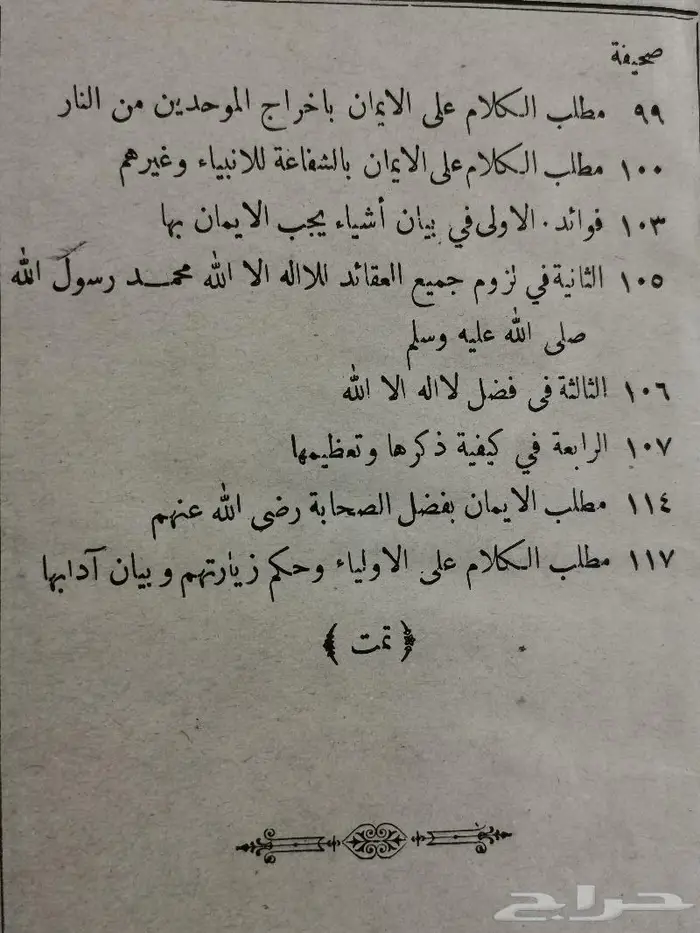 صحيفة
٩٩ مطلب الكلام على الايمان باخراج الموحدين من النار
١٠٠ مطلب الكلام على الايمان بالشفاعة للانبياء وغيرهم
١٠٣ فوائد . الاولى في بيان أشياء يجب الايمان بها
١٠٥ الثانية في لزوم جميع العقائد للااله الا الله محمد رسول الله
صلى الله عليه وسلم
١٠٦ الثالثة فى فضل لااله الا الله
١٠٧ الرابعة في كيفية ذكرها وتعظيمها
١١٤ مطلب الايمان بفضل الصحابة رضى الله عنهم
١١٧ مطلب الكلام على الاولياء وحكم زيارتهم وبيان آدابها
﴿ تمت ﴾
حراج